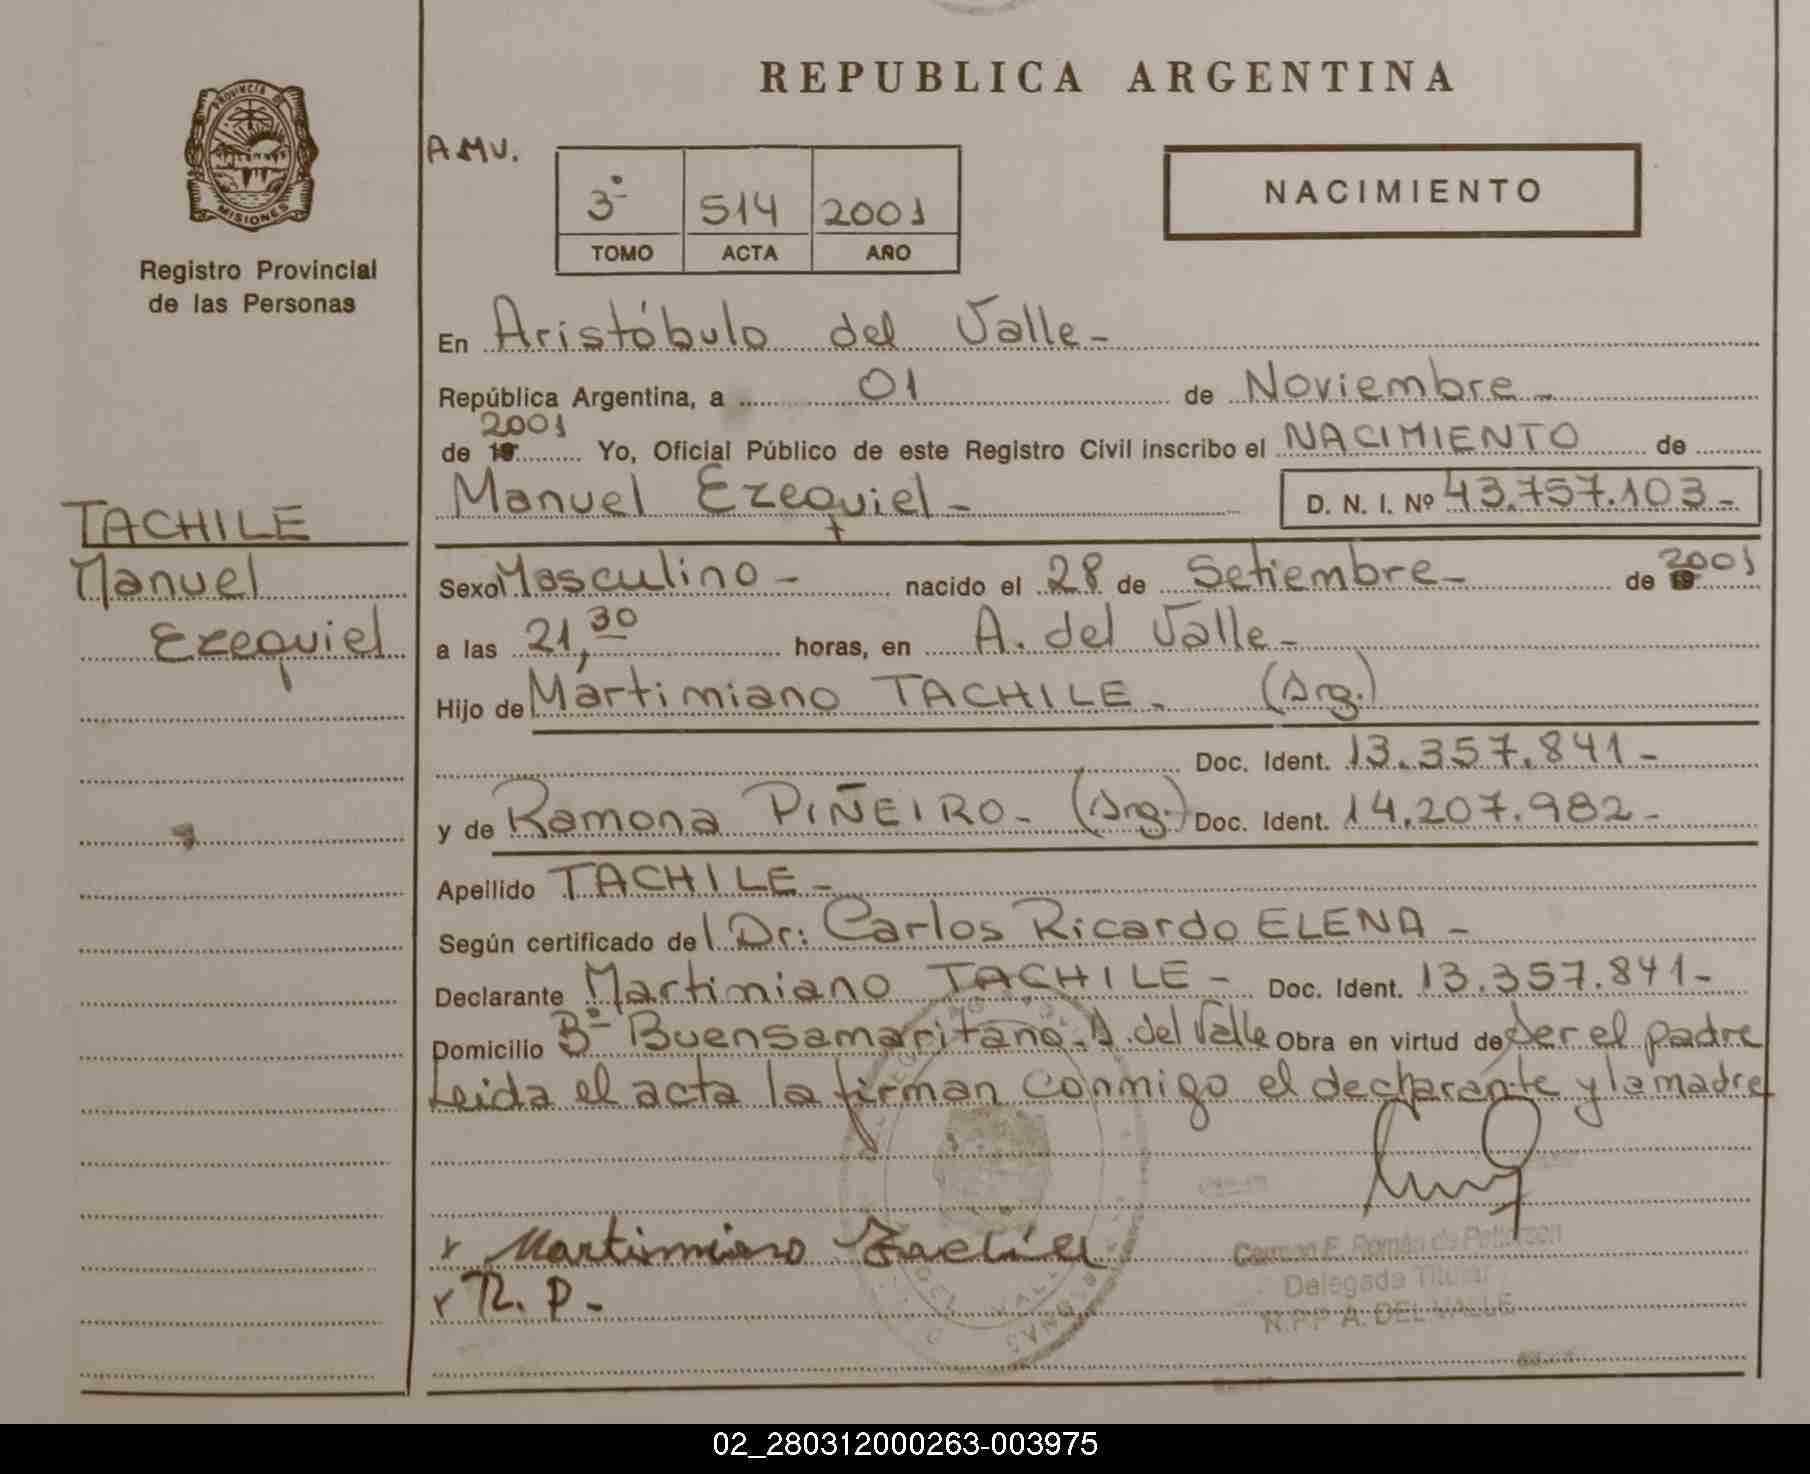 REPUBLICA ARGENTINA
PROVINCIA DE
MISIONES
Registro Provincial
de las Personas
A.M.V.
3º 514 2001
TOMO ACTA AÑO
NACIMIENTO
En Aristóbulo del Valle-
República Argentina, a 01 de Noviembre-
2001
de 19 Yo, Oficial Público de este Registro Civil inscribo el NACIMIENTO de
Manuel Ezequiel- D. N. I. Nº 43.757.103-
TACHILE
Manuel
Ezequiel
Sexo Masculino- nacido el 28 de Setiembre- de 19 2001
a las 21,30 horas, en A. del Valle-
Hijo de Martimiano TACHILE. (Arg.)
Doc. Ident. 13.357.841-
y de Ramona PIÑEIRO- (Arg.) Doc. Ident. 14.207.982-
Apellido TACHILE-
Según certificado del Dr: Carlos Ricardo ELENA-
Declarante Martimiano TACHILE- Doc. Ident. 13.357.841-
Domicilio Bº Buensamaritano. A. del Valle Obra en virtud de ser el padre
Leida el acta la firman conmigo el declarante y la madre
Martimiano
R. P-
Carmen E. Román de
Delegada Titular
R.P.P. A. DEL VALLE
02_280312000263-003975